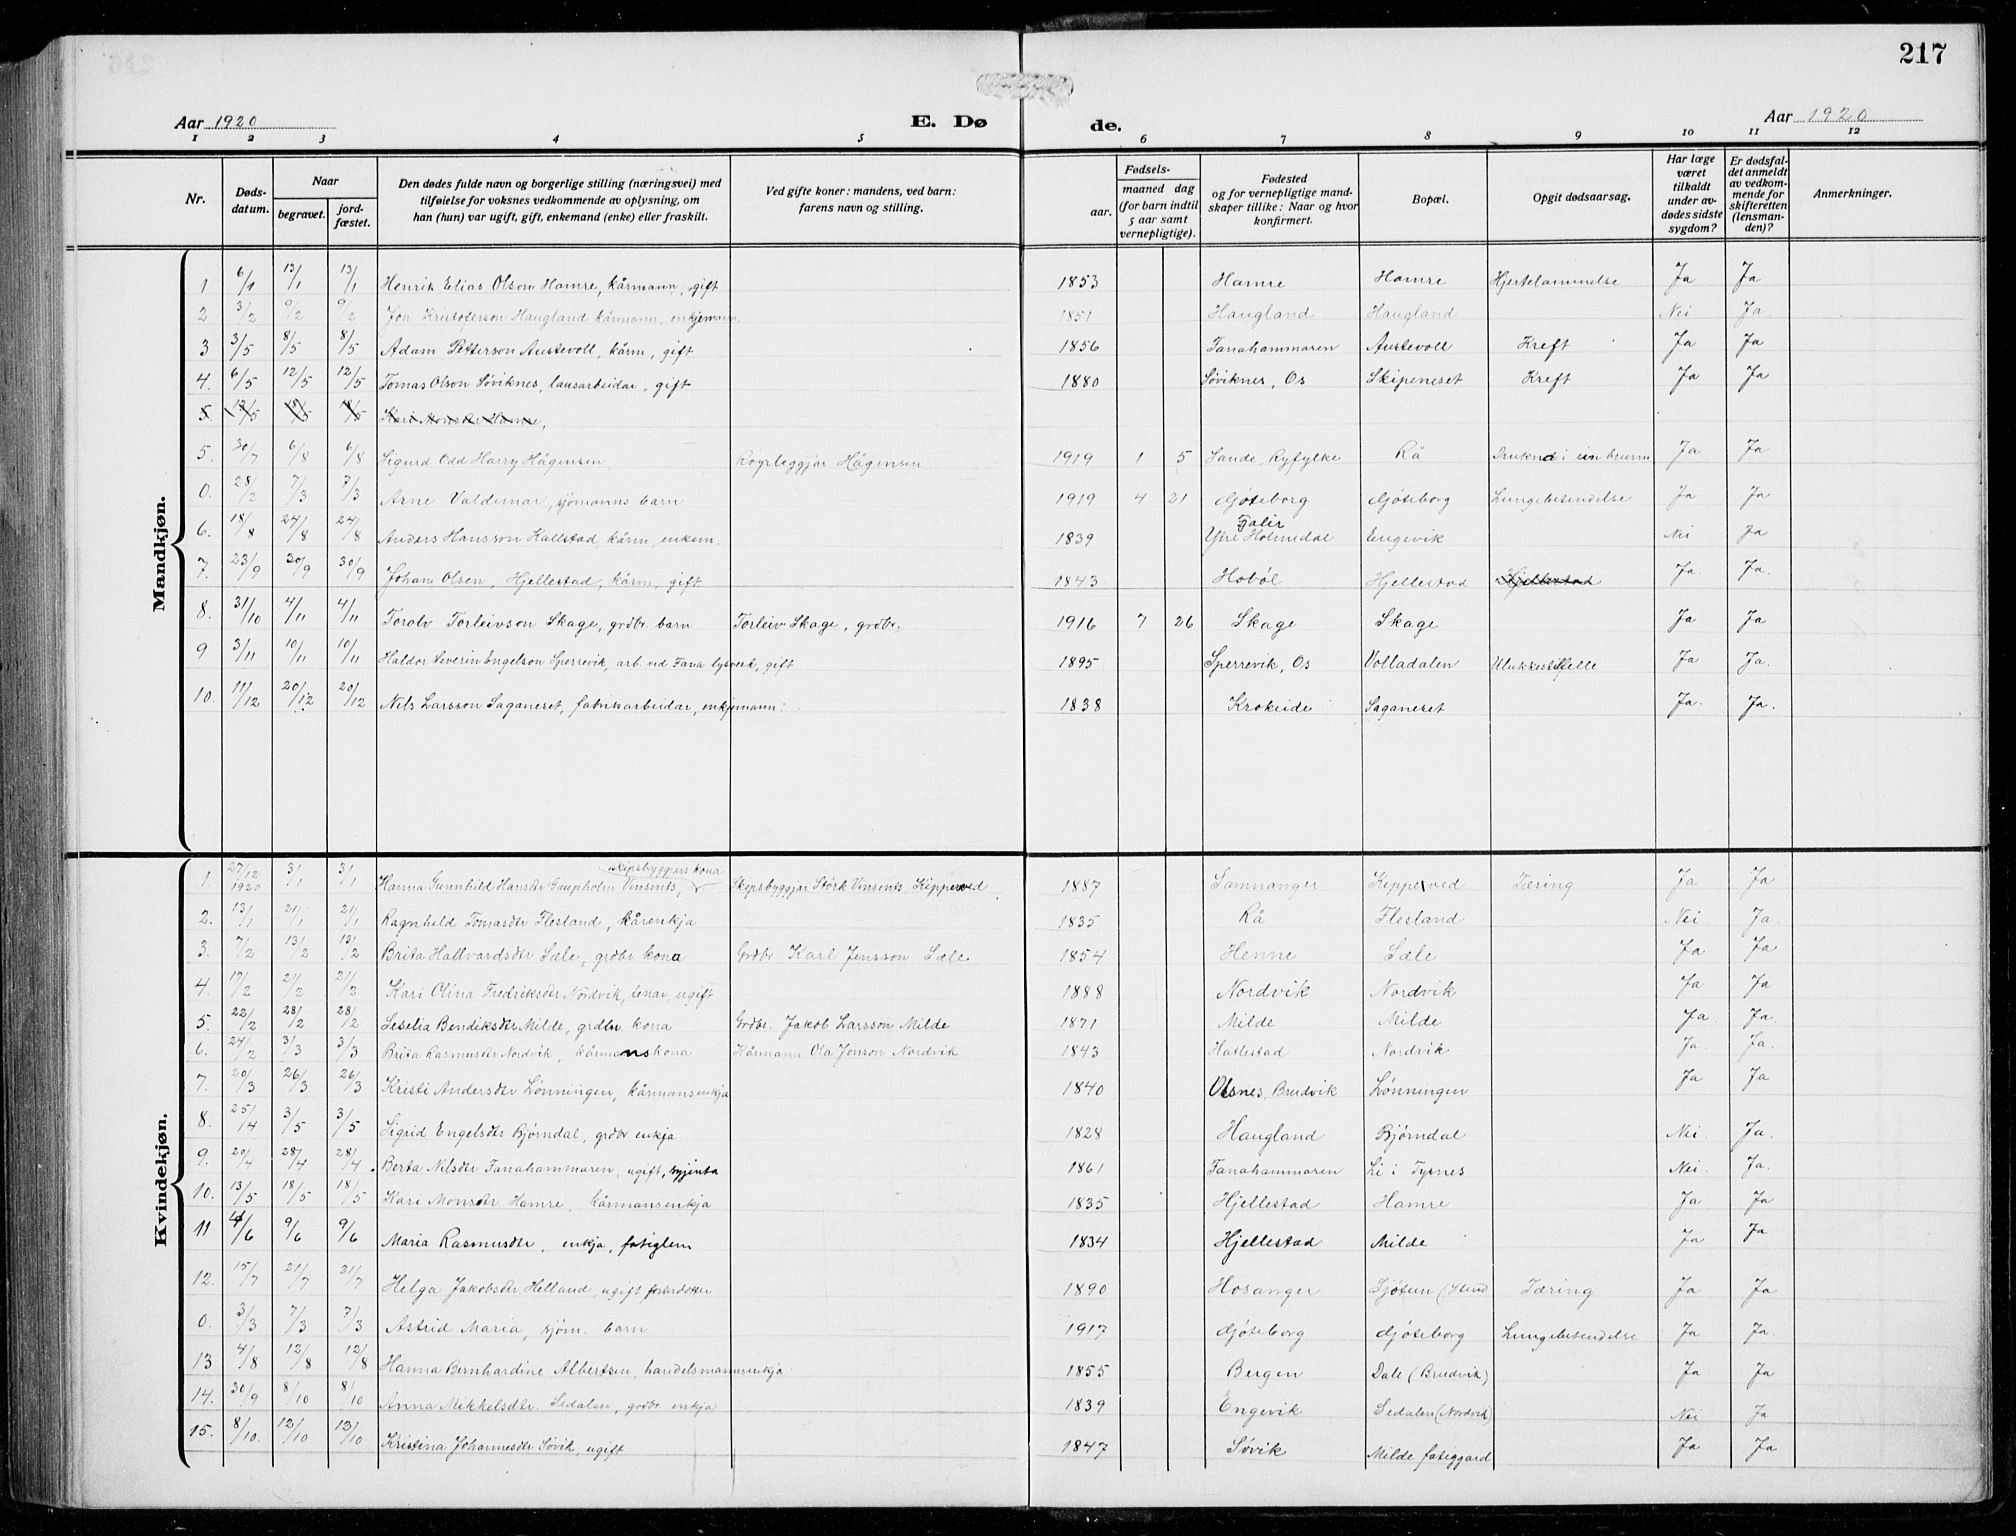 217
Aar 1920 E. Dø de. Aar 1920
1 2 3 4 5 6 7 8 9 10 11 12
Nr. Døds-datum. Naar begravet. jord-fæstet. Den dødes fulde navn og borgerlige stilling (næringsvei) med tilføielse for voksnes vedkommende av oplysning, om han (hun) var ugift, gift, enkemand (enke) eller fraskilt. Ved gifte koner: mandens, ved barn: farens navn og stilling. Fødsels- aar. maaned dag (for barn indtil 5 aar samt vernepligtige). Fødested og for vernepligtige mand-skaper tillike: Naar og hvor konfirmert. Bopæl. Opgit dødsaarsag. Har læge været tilkaldt under av-dødes sidste sygdom? Er dødsfal-det anmeldt av vedkom-mende for skifteretten (lensman-den)? Anmerkninger.
Mandkjøn.
1 6/1 13/1 13/1 Henrik Elias Olson Hamre, kårmann, gift 1853 Hamre Hamre Hjertelammelse Ja Ja
2 3/2 9/2 9/2 Jon Kristoferson Haugland kårmann, enkjemann. 1851 Haugland Haugland Nei Ja
3 3/5 8/5 8/5 Adam Petterson Austevoll, kårm, gift 1856 Fanahammaren Austevoll Kreft Ja Ja
4. 6/5 12/5 12/5 Tomas Olson Søviknes, lausarbeidar, gift 1880 Søviknes, Os Skipeneset Kreft Ja Ja
5. 13/5 18/5 18/5 Kari Monsdtr Hamre,
5. 30/7 6/8 6/8 Sigurd Odd Harry Hågensen Røyrleggjar Hågensen 1919 1 5 Sande, Ryfylke Rå Druknd i ein brunn Ja Ja
0. 28/2 7/3 7/3 Arne Valdemar, sjömanns barn 1919 4 21 Gjøteborg Gjøteborg Lungebetendelse Ja Ja
6. 18/8 24/8 24/8 Anders Hansson Hallstad, kårm, enkem. 1839 Ytre Holmedal Engevik Nei Ja
7. 23/9 30/9 30/9 Johan Olsen, Hjellestad, kårm, gift 1843 Hobøl Hjellestad Hjellestad Ja. Ja.
8. 31/10 4/11 4/11 Torolv Torleivson Skage, grdbr. barn Torleiv Skage, grdbr. 1916 7 26 Skage Skage Ja Ja
9 3/11 10/11 10/11 Haldor Severin Engelson Sperrevik, arb. ved Fana lysverk, gift 1895 Sperrevik, Os Volladalen Ulukkestilfelle Ja Ja.
10. 11/12 20/12 20/12 Nils Larsson Saganeset, fabrikarbeidar, enkjemann. 1838 Krokeide Saganeset Ja. Ja.
Kvindekjøn.
1. 27/12 1920 3/1 3/1 Hanna Gunnhild Hansdtr Gaupholm Vinsents, skipsbyggjars kona Skipsbyggjar Størk Vinsents, Kipperved 1887 Samnanger Kipperved Tæring Ja Ja
2. 13/1 21/1 21/1 Ragnhild Tomasdtr Flesland, kårenkja 1835 Rå Flesland Nei Ja.
3. 7/2 13/2 13/2 Brita Hallvardsdtr Sæle, grdbr kona Grdbr Karl Jensson Sæle 1854 Henne Sæle Ja Ja
4. 17/2 21/2 21/2 Kari Olina Fredriksdtr Nordvik, tenar, ugift 1888 Nordvik Nordvik Ja Ja
5. 22/2 28/2 28/2 Seselia Bendiksdtr Milde, grdbr kona Grdbr. Jakob Larsson Milde 1871 Milde Milde Ja. Ja.
6. 24/2 3/3 3/3 Brita Rasmusdtr Nordvik, kårmanskona Kårmann Ola Jonson Nordvik 1843 Hatlestad Nordvik Ja. Ja.
7. 20/3 26/3 26/3 Kristi Andersdtr Lønningen, kårmansenkja 1840 Olsnes, Brudvik Lønningen Ja Ja
8. 25/4 3/5 3/5 Sigrid Engelsdtr Bjørndal, grdbr enkja 1828 Haugland Bjørndal Nei. Ja.
9. 20/4 28/4 28/4 Berta Nilsdtr Fanahammaren, ugift, syjinta 1861 Fanahammaren Li i Tysnes Nei. Ja.
10. 13/5 18/5 18/5 Kari Monsdtr Hamre, kårmansenkja 1835 Hjellestad Hamre Ja Ja
11 4/6 9/6 9/6 Maria Rasmusdtr, enkja, fatiglem 1834 Hjellestad Milde Ja Ja
12. 15/7 21/7 21/7 Helga Jakobsdtr Helland, ugift 1890 Hosanger Sjøtun Tæring Ja Ja
0. 3/3 7/3 7/3 Astrid Maria, sjöm. barn 1917 Gjøteborg Gjøteborg Lungebetendelse Ja Ja.
13 4/8 12/8 12/8 Hanna Bernhardine Albertsen, handelsmannsenkja 1855 Bergen Dale (Brudvik) Ja Ja
14. 30/9 8/10 8/10 Anna Mikkelsdtr. Sedalen, grdbr enkja 1839 Engevik Sedalen (Nordvik) Nei Ja
15. 8/10. 13/10 13/10 Kristina Johannesdtr Søvik, ugift 1847 Søvik Milde fatiggard Ja Ja